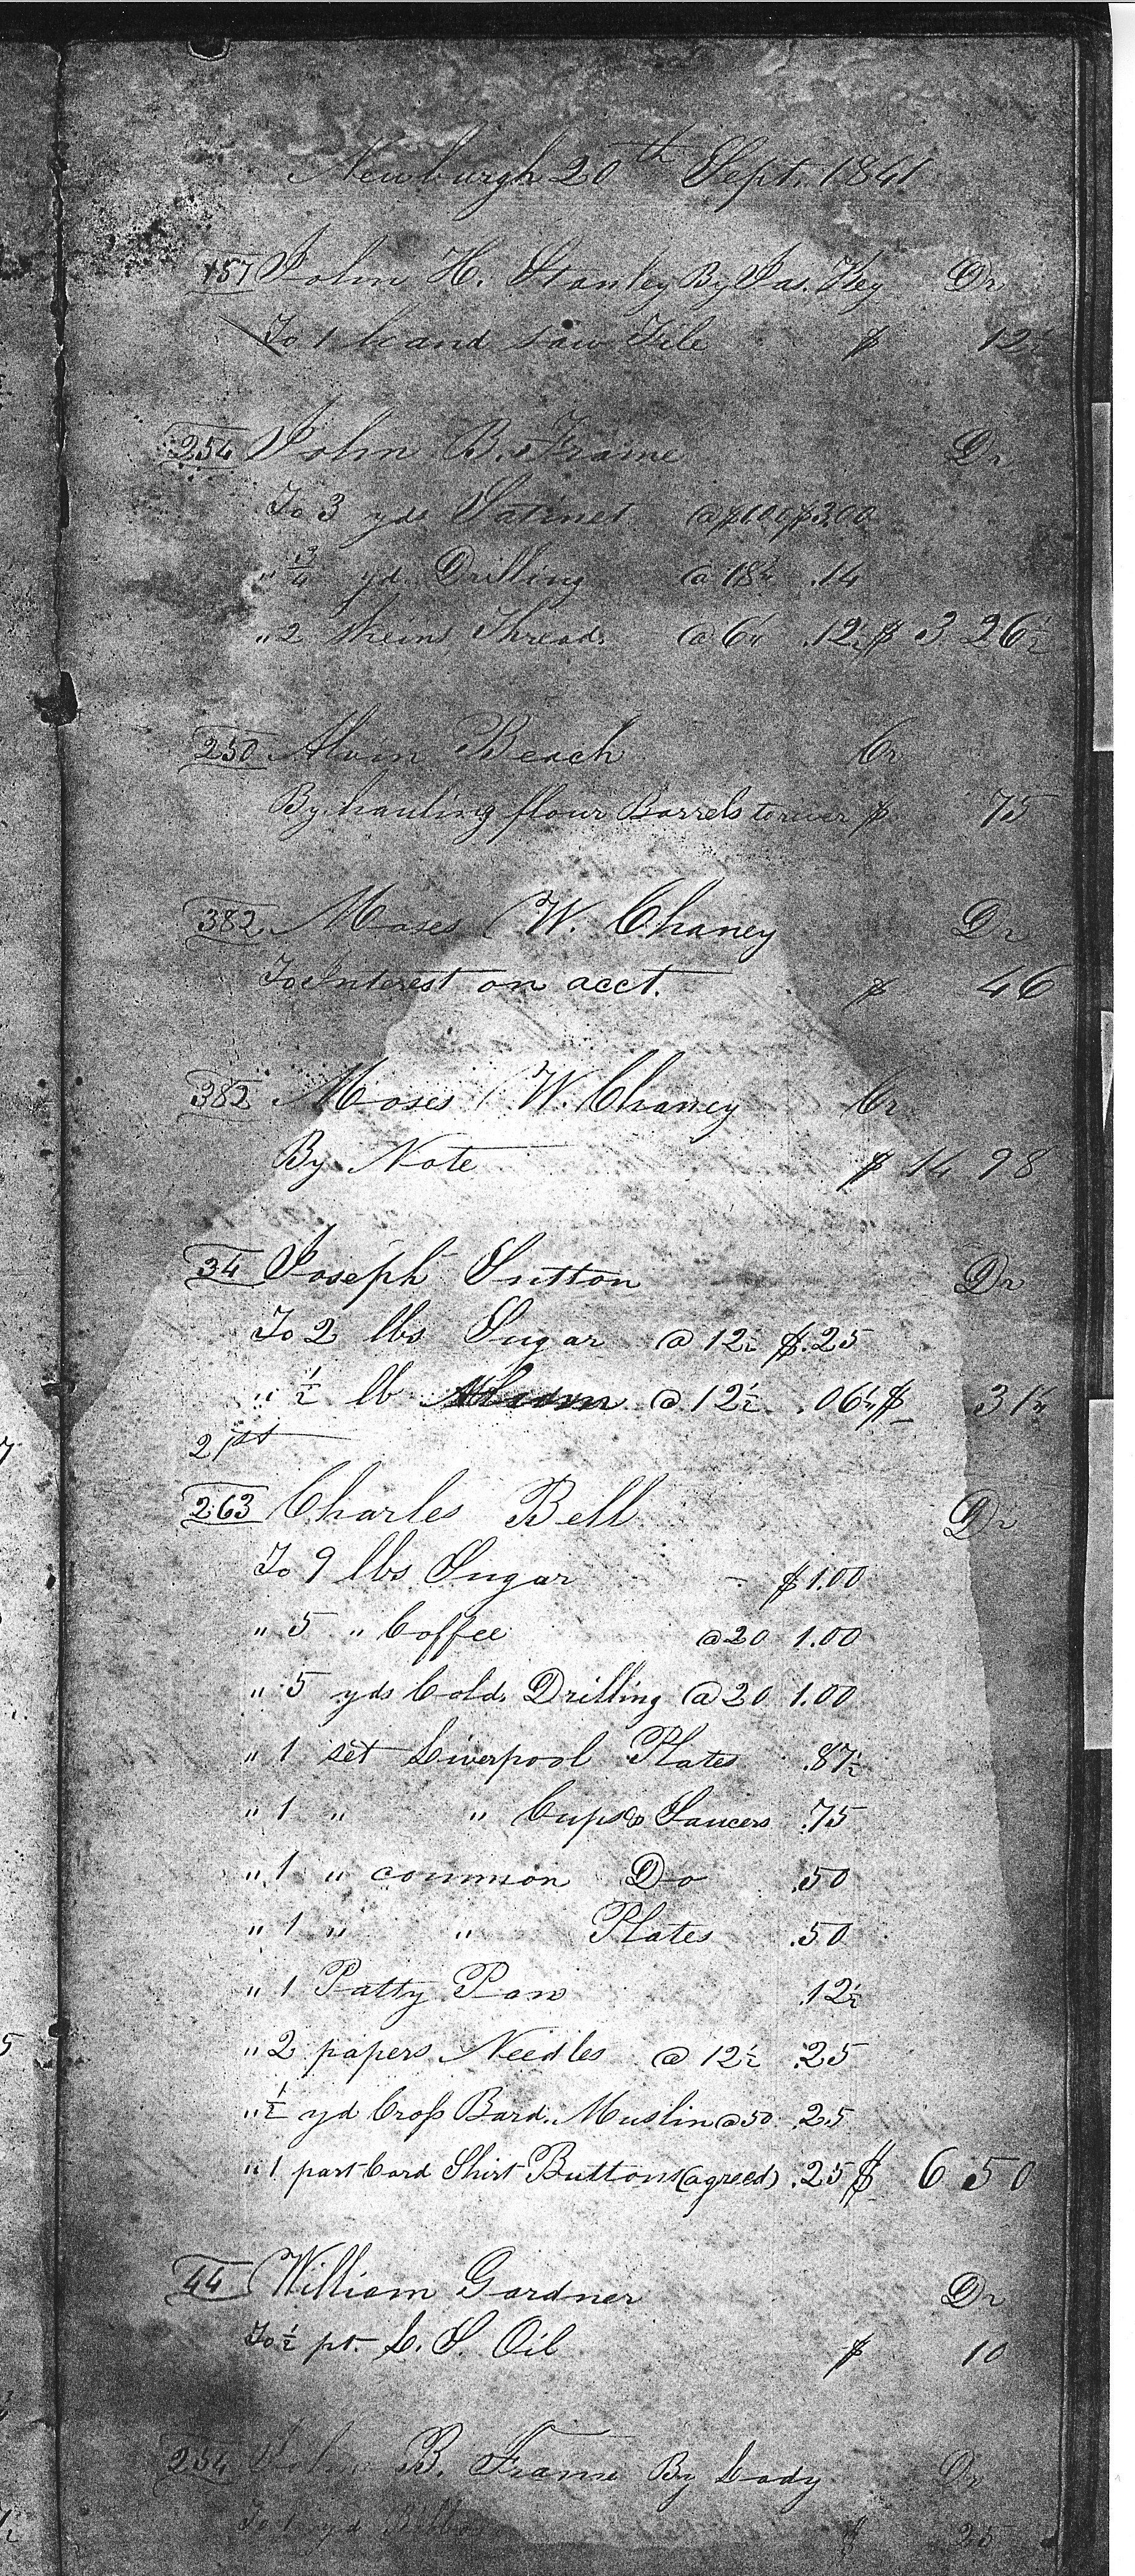 Newburgh 20th Sept. 1841
157 John H. Stanley By Jas. Key Dr
To 1 hand saw File $ 12½
254 John B. Frame Dr
To 3 yds Satinet @ $1.00 $3.00
" ¾ yd. Drilling @ 18¾ .14
" 2 skeins Thread. @ 6¼ .12½ $ 3 26½
250 Alvin Beach Cr
By hauling flour Barrels to river $ 75
382 Moses W. Chaney Dr
To Interest on acct. $ 46
382 Moses W. Chaney Cr
By Note $ 14 98
34 Joseph Sutton Dr
To 2 lbs Sugar @ 12½ $.25
" ½ lb @ 12½ .06¼ $ 31¼
21st
263 Charles Bell Dr
To 9 lbs Sugar - $1.00
" 5 " Coffee @ 20 1.00
" 5 yds Cold. Drilling @ 20 1.00
" 1 set Liverpool Plates .87½
" 1 " " Cups & Saucers .75
" 1 " common Do .50
" 1 " " Plates .50
" 1 Patty Pan .12½
" 2 papers Needles @ 12½ .25
" ½ yd Cross Bard. Muslin @ 50 .25
" 1 part Card Shirt Buttons (agreed) .25 $ 6 50
44 William Gardner Dr
To ½ pt. L. S. Oil $ 10
254 John B. Frame By Lady Dr
To 1 yd $ 25